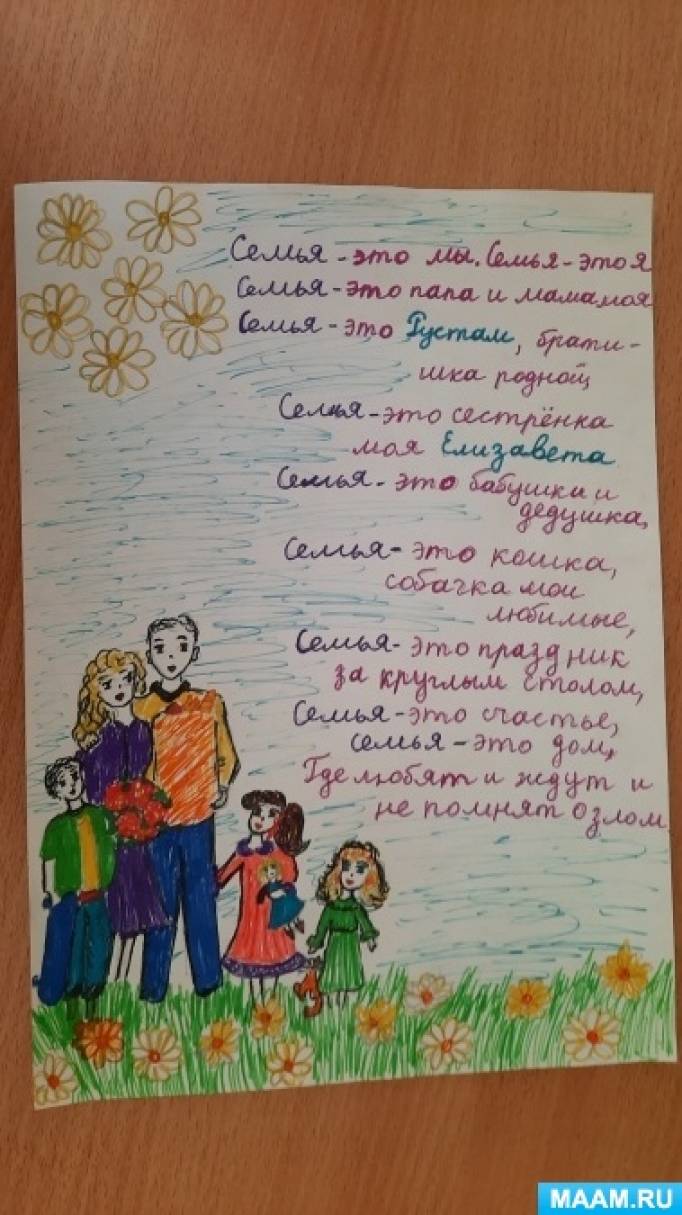 Семья - это мы. Семья - это я
Семья - это папа и мама моя
Семья - это Рустам, брати -
шка родной
Семья - это сестрёнка
моя Елизавета
Семья - это бабушки и
дедушка,
Семья - это кошка,
собачка мои
любимые,
Семья - это праздник
за круглым столом,
Семья - это счастье,
семья - это дом,
Где любят и ждут и
не помнят о злом
MAAM.RU